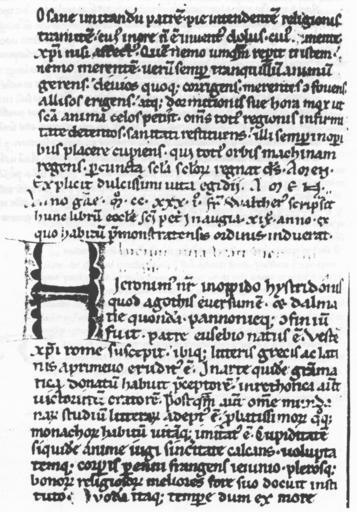 O sane imitandū patrē. pie intendentē religionis
tramitē. cuī in ore n̄ ē inventꝰ dolus. cuī mente
xp̄i nisi affectꝰ. Quē nemo umqͣm repit tristem.
nemo merentē. verū semp tranquillū animum
gerens. devios quoq; corrigens. merentes ꝯfovens
allisos erigens. atq; dormitionis sue hora mox ut
scā anima celos petiit. oms totiꝰ regionis infirmi
tate detentos. sanitati restituens. illi semp in opi
bus placere cupiens. qui totiꝰ orbis machinam
regens. p cuncta sclā sclorꝝ regnat ds̄. Amen.
Explicit dulcissimi vita egidii. A M E N.
Anno gr̄e. mͦ. cͦc. xxxͦ. iͦ. fr̄ Walther scripsit
hunc librū eccl̄e sc̄i pet in augia. xixͦ. anno. ex
quo habitū p̄monstratensis ordinis induerat.
Hieronimꝰ nr̄ in oppido hystridonis
quod a gothis eversum ē. & dalma
tie quondā. pannonieq; ꝯfiniū
fuit. patre eusebio natus ē. Veste
xp̄i rome suscepit. ibiq; litteris grecis ac lati
nis a primevo eruditꝰ ē. In arte quidē gram̄a
tica donatū habuit p̄ceptorē. in rethorica aut̄
victorinū oratorē. Postqͣm aut̄ om̄e munda
narꝝ studiū litterarꝝ adeptꝰ ē. p̄latissimorꝝ qͦq;
monachorꝝ habitū vitāq; imitatꝰ ē. Cupiditatē
siquidē anime iugi sinceritate calcans. volupta
temq; corp̄is p om̄ia frangens ieiunio. plerosq;
bonorꝝ religiosorꝝ meliores fore suo docuit insti
tuto. Quodā itaq; tempe dum ex more